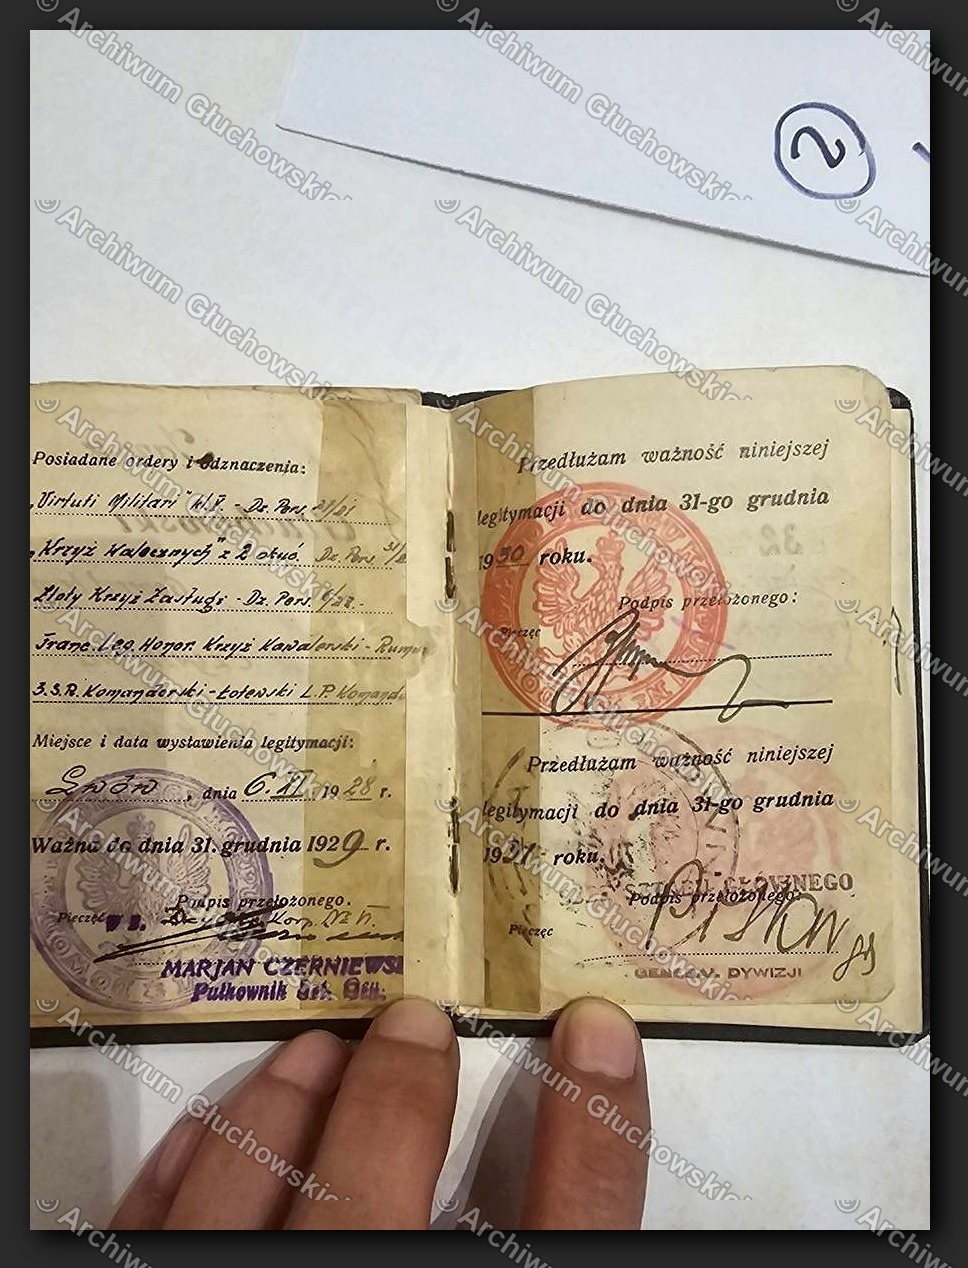 2
Posiadane ordery i odznaczenia:
„Virtuti Militari" kl. V. - Dz. Pers.
„Krzyż Walecznych" z 2 okuć. Dz. Pers.
Złoty Krzyż Zasługi - Dz. Pers.
Franc. Leg. Honor. Krzyż Kawalerski -
Komandorski - Łotewski L.P.
Miejsce i data wystawienia legitymacji:
Lwów, dnia 6. XI. 1928 r.
Ważna do dnia 31. grudnia 1929 r.
Podpis przełożonego.
Pieczęć
MARJAN CZERNIEWSKI
Pułkownik Szt. Gen.
Przedłużam ważność niniejszej
legitymacji do dnia 31-go grudnia
1930 roku.
Podpis przełożonego:
Pieczęć
Przedłużam ważność niniejszej
legitymacji do dnia 31-go grudnia
1931 roku.
GŁÓWNEGO
Podpis przełożonego:
Pieczęć
DYWIZJI
© Archiwum Głuchowskich